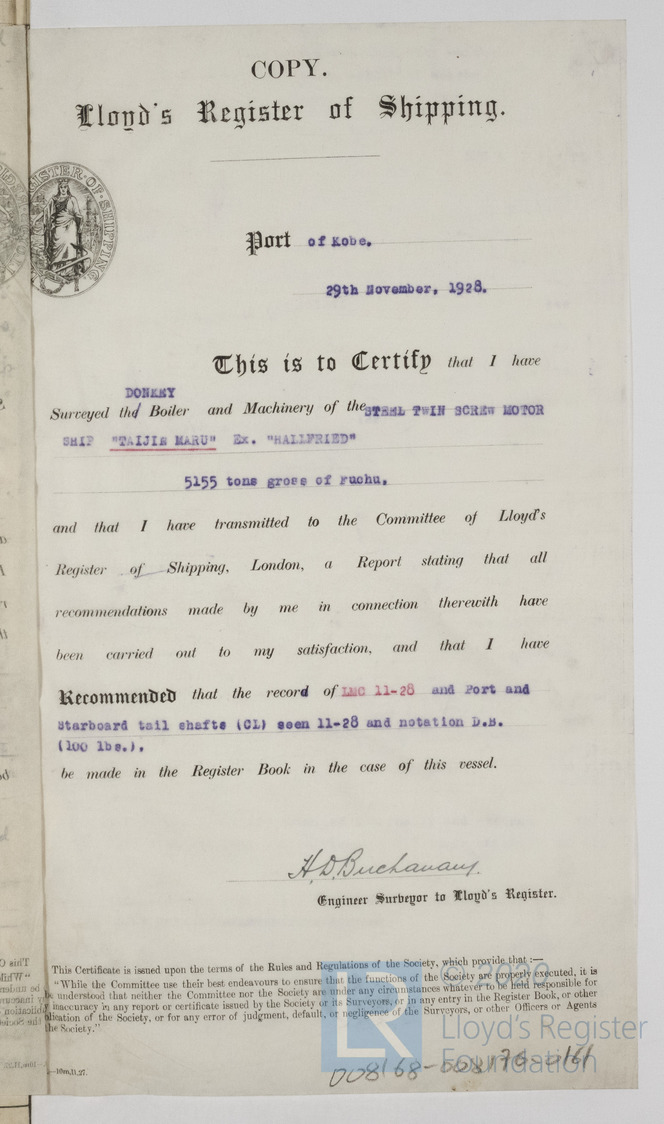 COPY.
Lloyd's Register of Shipping.
REGISTER·OF·SHIPPING
Port of Kobe.
29th November, 1928.
This is to Certify that I have
DONKEY
Surveyed the Boiler and Machinery of the STEEL TWIN SCREW MOTOR
SHIP "TAIJIN MARU" Ex. "HALLFRIED"
5155 tons gross of Fuchu.
and that I have transmitted to the Committee of Lloyd's
Register of Shipping, London, a Report stating that all
recommendations made by me in connection therewith have
been carried out to my satisfaction, and that I have
Recommended that the record of LMC 11-28 and Port and
Starboard tail shafts (CL) seen 11-28 and notation D.B.
(100 lbs.).
be made in the Register Book in the case of this vessel.
H.D. Buchanan
Engineer Surveyor to Lloyd's Register.
This Certificate is issued upon the terms of the Rules and Regulations of the Society, which provide that :—
"While the Committee use their best endeavours to ensure that the functions of the Society are properly executed, it is
be understood that neither the Committee nor the Society are under any circumstances whatever to be held responsible for
inaccuracy in any report or certificate issued by the Society or its Surveyors, or in any entry in the Register Book, or other
lication of the Society, or for any error of judgment, default, or negligence of the Surveyors, or other Officers or Agents
the Society."
—10m,11,27.
© 2020
LR
Lloyd's Register
Foundation
008168-008176-0161